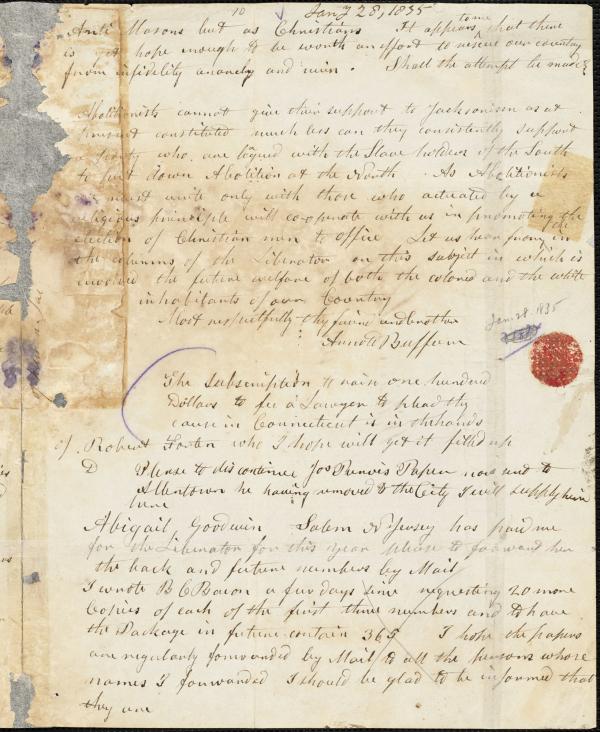 10 Jany 28, 1835
Anti Masons but as Christians It appears to me that there
is yet hope enough to be worth an effort to rescue our country
from infidelity anarchy and ruin. Shall the attempt be made?
Abolitionists cannot give their support to Jacksonism as at
present constituted much less can they consistently support
a party who are leagued with the Slave holders of the South
to put down Abolition at the North. As Abolitionists
we must unite only with those who actuated by a
religious principle will co-operate with us in promoting the
election of Christian men to office Let us hear from the in
the columns of the Liberator on this subject in which is
involved the future welfare of both the colored and the white
inhabitants of our Country
Most respectfully thy friend and brother
Arnold Buffum
Jan. 28. 1835
The subscription to rain one hundred
Dollars to fee a Lawyer to plead thy
cause in Connecticut is in the hands
of Robert Foster who I hope will get it filled up
Please to discontinue Jos Purvis Paper now sent to
Allentown he having removed to the City I will supply him
here
Abigail Goodwin Salem N Jersey has paid me
for the Liberator for this year please to forward her
the back and future numbers by Mail
I wrote B C Bacon a few days since requesting 20 more
Copies of each of the first three numbers and to have
the Package in future contain 365 I hope the papers
are regularly forwarded by Mail to all the persons whose
names I forwarded I should be glad to be informed that
they are